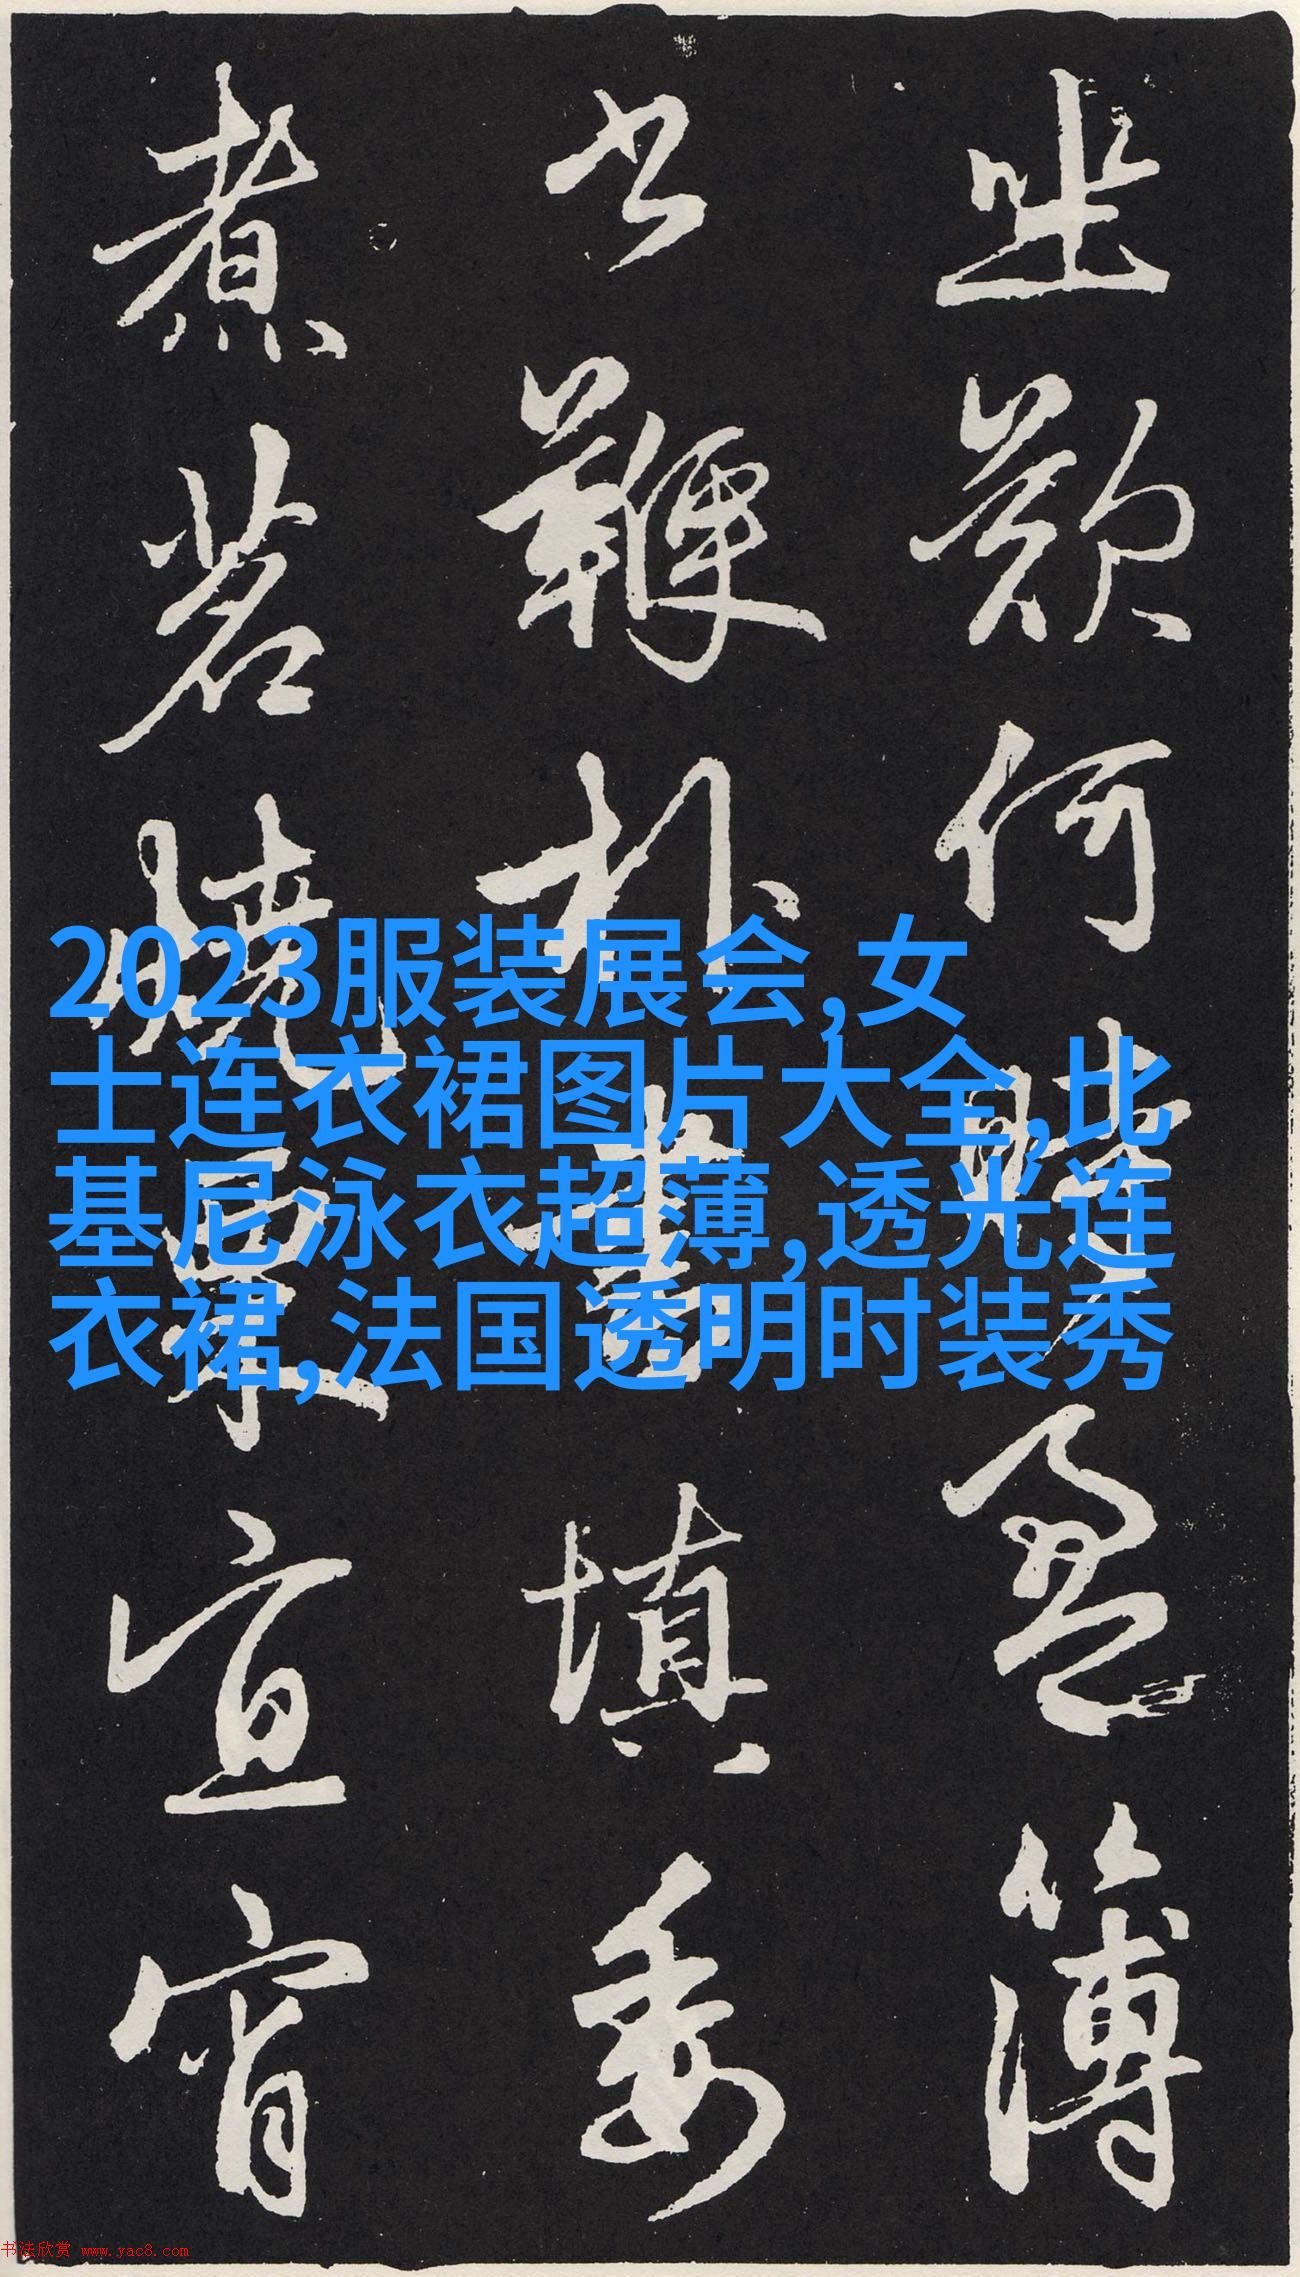 何簿
书鞭朴晝填委
煮茗燒栗宜宵
2023服装展会,女
士连衣裙图片大全,比
基尼泳衣超薄,透光连
衣裙,法国透明时装秀
书法欣赏 www.yac8.com